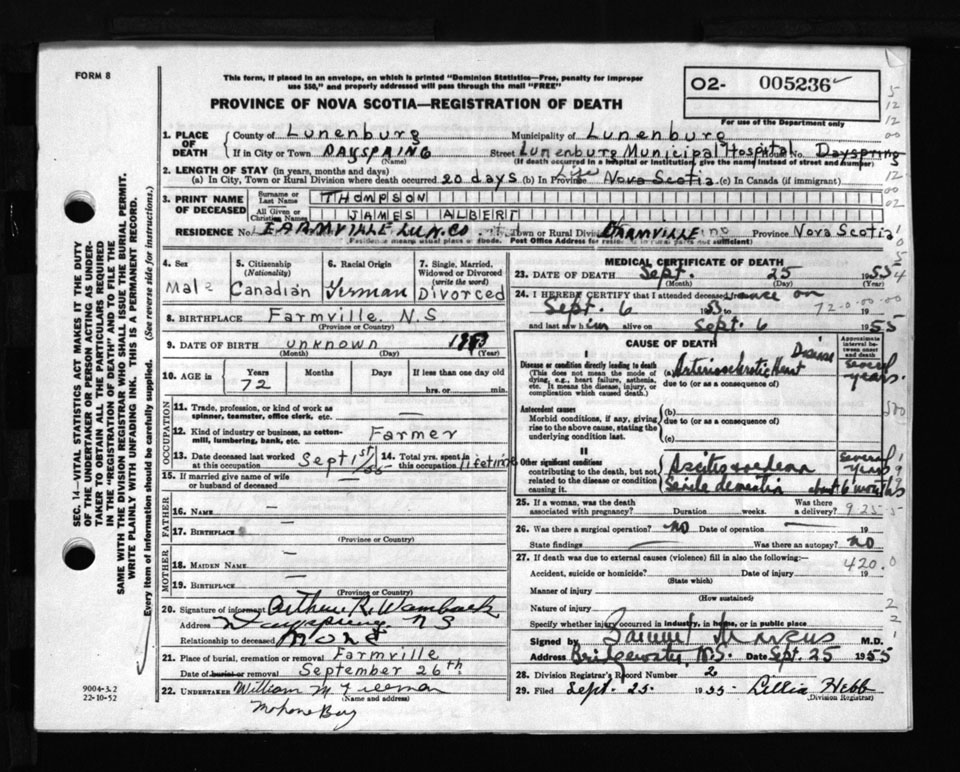 FORM 8
This form, if placed in an envelope, on which is printed "Dominion Statistics—Free, penalty for improper
use $50," and properly addressed will pass through the mail "FREE"
PROVINCE OF NOVA SCOTIA—REGISTRATION OF DEATH
02- 005236
For use of the Department only
SEC. 14—VITAL STATISTICS ACT MAKES IT THE DUTY
OF THE UNDERTAKER OR PERSON ACTING AS UNDER-
TAKER TO OBTAIN ALL THE PARTICULARS REQUIRED
IN THE "REGISTRATION OF DEATH" AND TO FILE THE
SAME WITH THE DIVISION REGISTRAR WHO SHALL ISSUE THE BURIAL PERMIT.
WRITE PLAINLY WITH UNFADING INK. THIS IS A PERMANENT RECORD.
Every item of information should be carefully supplied. (See reverse side for instructions.)
1. PLACE OF DEATH
County of Lunenburg Municipality of Lunenburg
If in City or Town DAYSPRING Street Lunenburg Municipal Hospital House No. Dayspring
(Name) (If death occurred in a hospital or institution, give the name instead of street and number)
2. LENGTH OF STAY (in years, months and days)
(a) In City, Town or Rural Division where death occurred 20 days (b) In Province life Nova Scotia (c) In Canada (if immigrant)
3. PRINT NAME OF DECEASED
Surname or Last Name THOMPSON
All Given or Christian Names JAMES ALBERT
RESIDENCE No. FARMVILLE LUN.CO Town or Rural Division FARMVILLE Province Nova Scotia
Residence means usual place of abode. Post Office Address for residence in rural parts not sufficient)
4. Sex Male
5. Citizenship (Nationality) Canadian
6. Racial Origin German
7. Single, Married, Widowed or Divorced (write the word) Divorced
8. BIRTHPLACE Farmville N.S
(Province or Country)
9. DATE OF BIRTH unknown 1883
(Month) (Day) (Year)
10. AGE in Years Months Days If less than one day old
72 hrs. or min.
OCCUPATION
11. Trade, profession, or kind of work as
spinner, teamster, office clerk, etc. —
12. Kind of industry or business, as cotton-
mill, lumbering, bank, etc. Farmer
13. Date deceased last worked at this occupation Sept 1st/55
14. Total yrs. spent in this occupation lifetime
15. If married give name of wife
or husband of deceased —
FATHER
16. NAME —
17. BIRTHPLACE —
(Province or Country)
MOTHER
18. MAIDEN NAME —
19. BIRTHPLACE —
(Province or Country)
20. Signature of informant Arthur R. Wamback
Address Dayspring NS
Relationship to deceased None
21. Place of burial, cremation or removal Farmville
Date of burial or removal September 26th
22. UNDERTAKER William M. Freeman
(Name and address)
Mahone Bay
9004-3.2
22-10-52
MEDICAL CERTIFICATE OF DEATH
23. DATE OF DEATH Sept. 25 1955
(Month) (Day) (Year)
24. I HEREBY CERTIFY that I attended deceased from once on
Sept. 6 1955 to 19
72-0-00-00
and last saw him alive on Sept. 6 1955
CAUSE OF DEATH
Approximate interval between onset and death
I
Disease or condition directly leading to death
(This does not mean the mode of
dying, e.g., heart failure, asthenia,
etc. It means the disease, injury, or
complication which caused death.)
(a) Arteriosclerotic Heart Disease
Several years.
due to (or as a consequence of)
Antecedent causes
Morbid conditions, if any, giving
rise to the above cause, stating the
underlying condition last.
(b)
due to (or as a consequence of)
(c)
II
Other significant conditions
contributing to the death, but not
related to the disease or condition
causing it.
Ascites & oedema Several years
Senile dementia about 6 months
25. If a woman, was the death
associated with pregnancy? Duration weeks. Was there a delivery?
925-5
26. Was there a surgical operation? NO Date of operation —
State findings Was there an autopsy? NO
27. If death was due to external causes (violence) fill in also the following:—
420.0
Accident, suicide or homicide? Date of injury 19
(State which)
Manner of injury
(How sustained)
Nature of injury
Specify whether injury occurred in industry, in home, or in public place
Signed by Samuel Marcus M.D.
Address Bridgewater, N.S. Date Sept. 25 1955
28. Division Registrar's Record Number 2
29. Filed Sept. 25. 1955 Lillia Hebb
(Division Registrar)